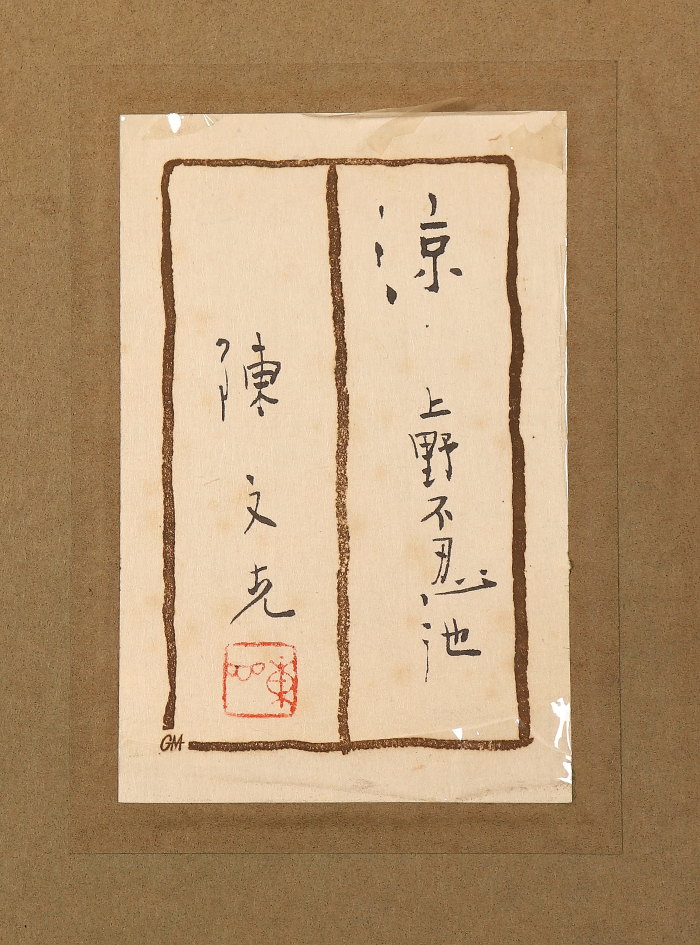 涼・上野不忍池
陳文克
GM